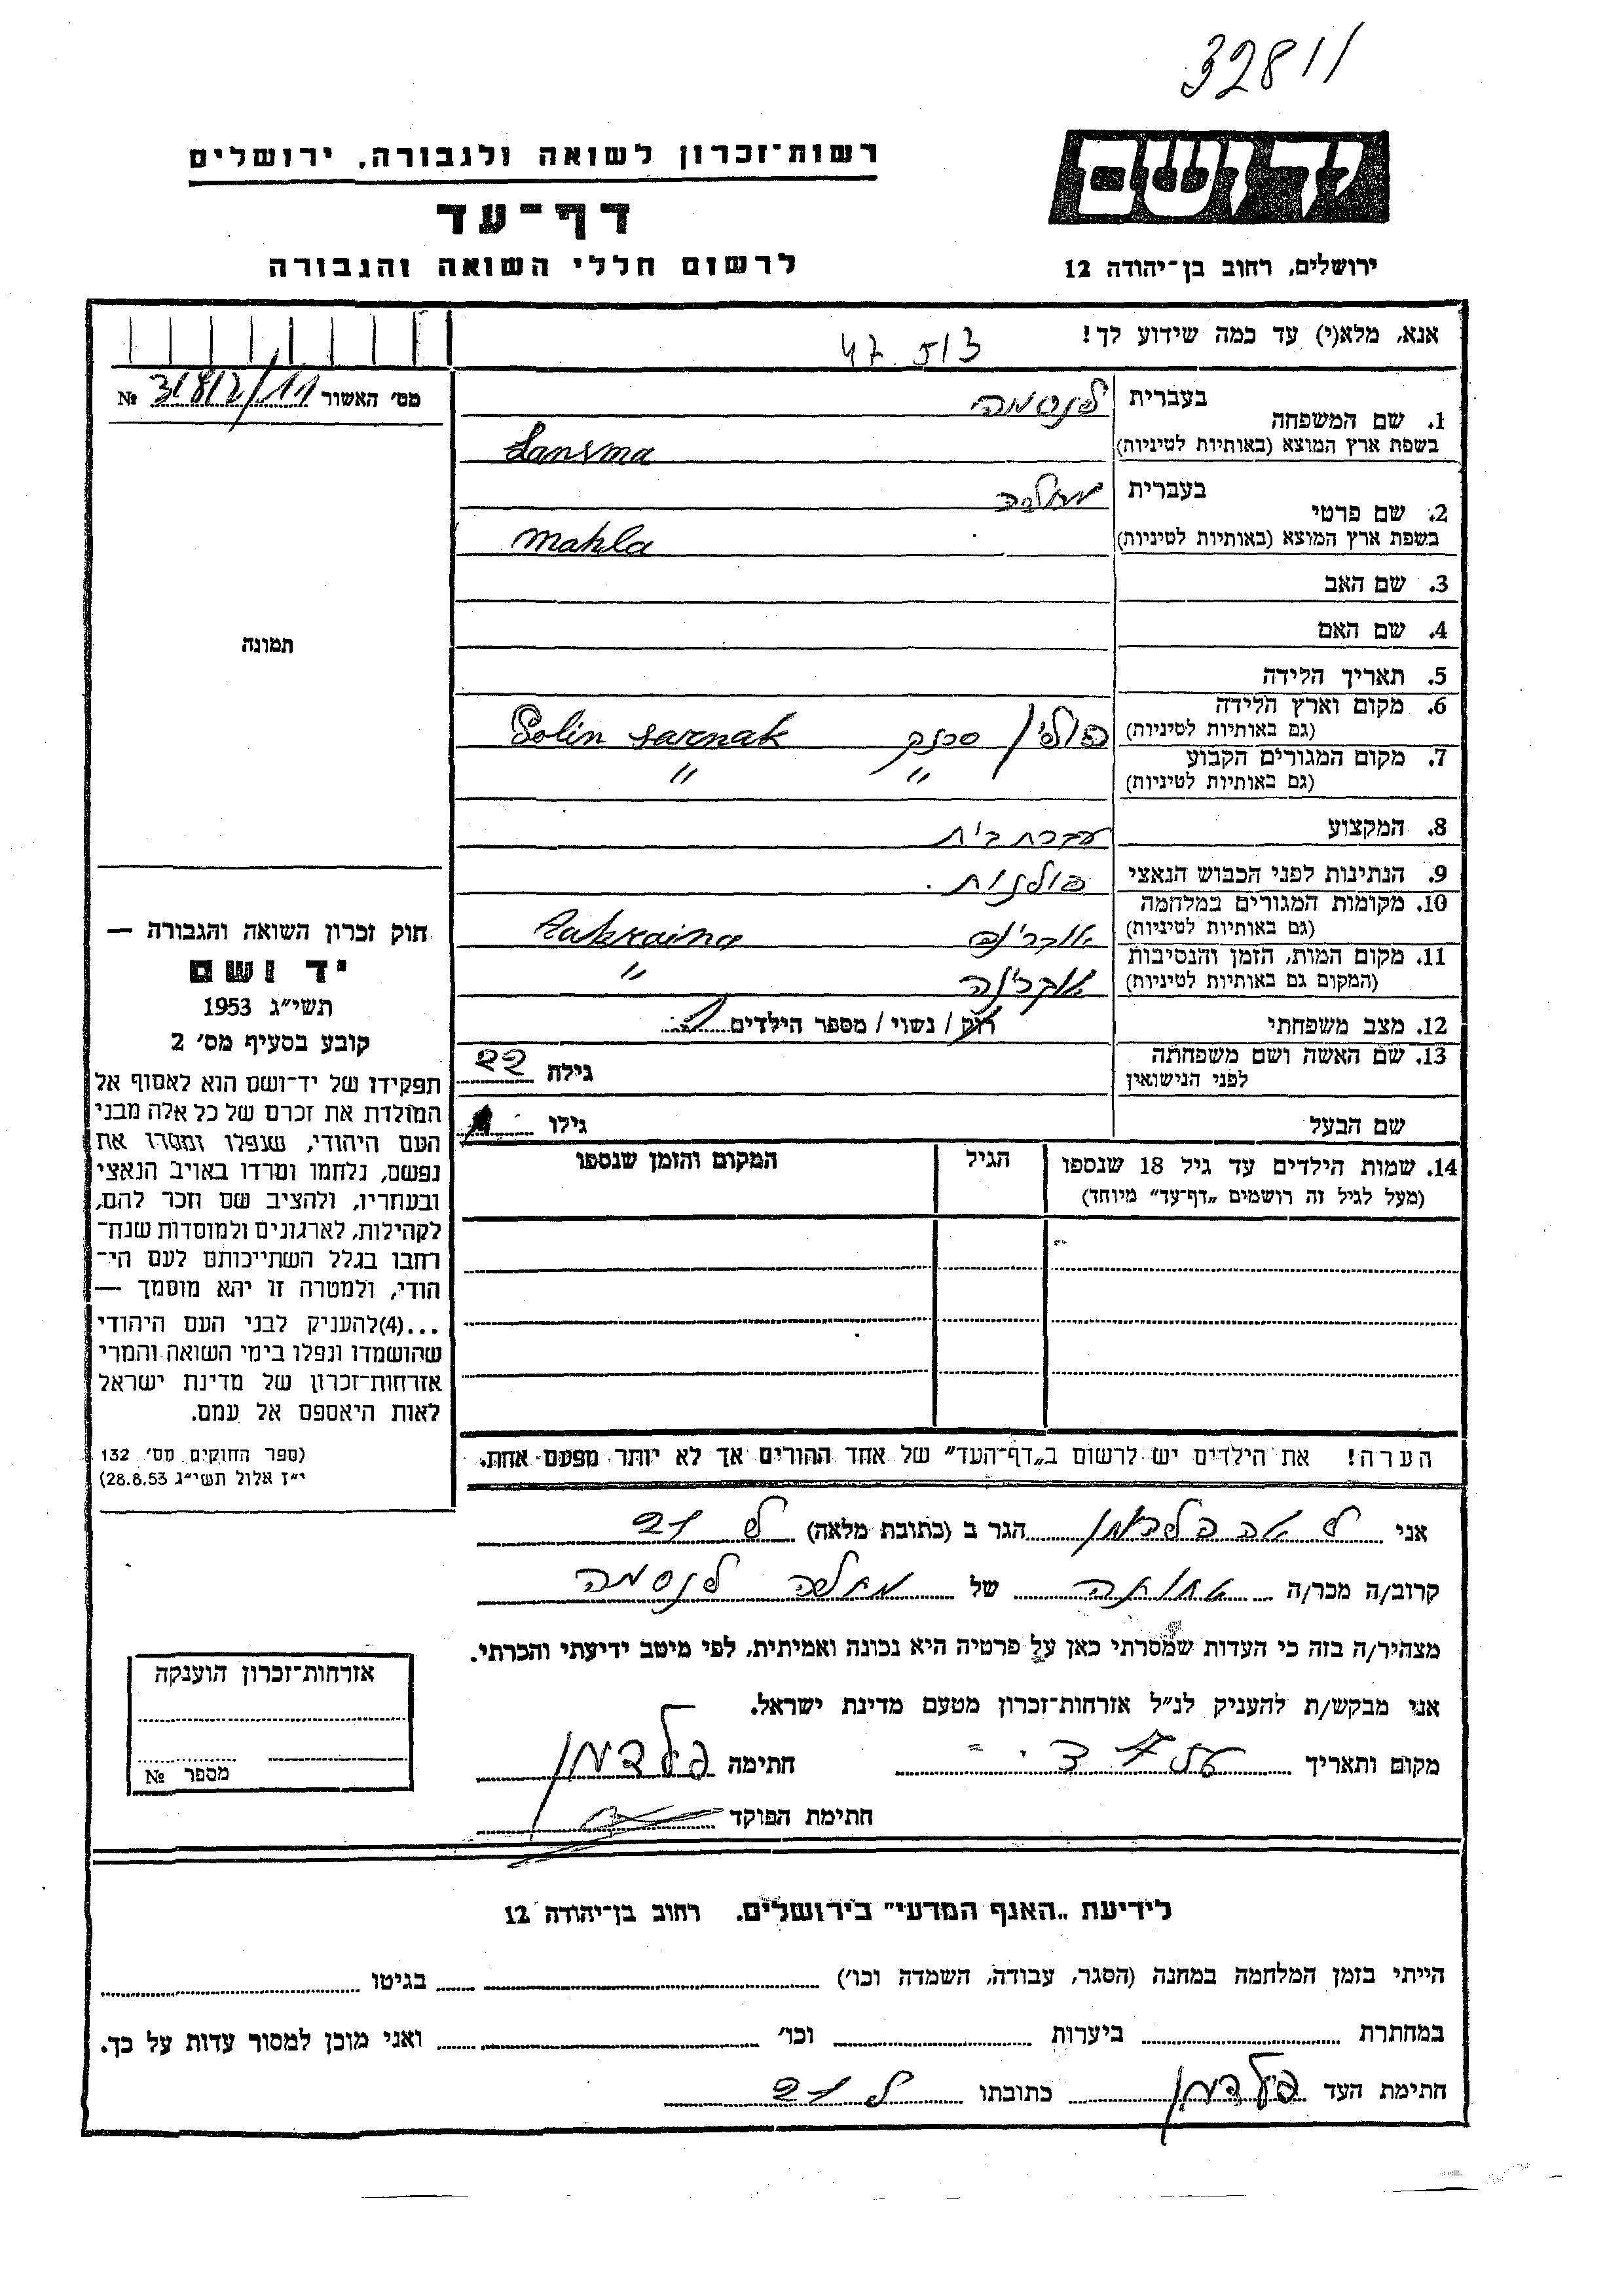 32811
רשות־זכרון לשואה ולגבורה, ירושלים
יד ושם
דף־עד
לרשום חללי השואה והגבורה
ירושלים, רחוב בן־יהודה 12
אנא, מלא(י) עד כמה שידוע לך!
מס' האשור №
1. שם המשפחה
בעברית לנסמה
בשפת ארץ המוצא (באותיות לטיניות) Lansma
2. שם פרטי
בעברית מחלה
בשפת ארץ המוצא (באותיות לטיניות) mahla
3. שם האב
4. שם האם
תמונה
5. תאריך הלידה
6. מקום וארץ הלידה
(גם באותיות לטיניות) פולין סרנק Polin sarnak
7. מקום המגורים הקבוע
(גם באותיות לטיניות) " "
8. המקצוע עקרת בית
9. הנתינות לפני הכבוש הנאצי פולנות.
10. מקומות המגורים במלחמה
(גם באותיות לטיניות)
11. מקום המות, הזמן והנסיבות
(המקום גם באותיות לטיניות) אוקרינה "
12. מצב משפחתי רוק / נשוי / מספר הילדים
13. שם האשה ושם משפחתה
לפני הנישואין
גילה 22
שם הבעל גילו
14. שמות הילדים עד גיל 18 שנספו
(מעל לגיל זה רושמים „דף־עד" מיוחד)
הגיל
המקום והזמן שנספו
חוק זכרון השואה והגבורה —
יד ושם
תשי"ג 1953
קובע בסעיף מס' 2
תפקידו של יד־ושם הוא לאסוף אל
המולדת את זכרם של כל אלה מבני
העם היהודי, שנפלו ומסרו את
נפשם, נלחמו ומרדו באויב הנאצי
ובעוזריו, ולהציב שם וזכר להם,
לקהילות, לארגונים ולמוסדות שנח־
רבו בגלל השתייכותם לעם הי־
הודי, ולמטרה זו יהא מוסמך —
...(4) להעניק לבני העם היהודי
שהושמדו ונפלו בימי השואה והמרי
אזרחות־זכרון של מדינת ישראל
לאות היאספם אל עמם.
(ספר החוקים מס' 132
י"ז אלול תשי"ג 28.8.53)
הערה! את הילדים יש לרשום ב„דף־העד" של אחד ההורים אך לא יותר מפעם אחת.
אני לאה פלדמן הגר ב (כתובת מלאה)
קרוב/ה מכר/ה אחותה של מחלה לנסמה
מצהיר/ה בזה כי העדות שמסרתי כאן על פרטיה היא נכונה ואמיתית, לפי מיטב ידיעתי והכרתי.
אני מבקש/ת להעניק לנ"ל אזרחות־זכרון מטעם מדינת ישראל.
מקום ותאריך חתימה פלדמן
חתימת הפוקד
אזרחות־זכרון הוענקה
מספר №
לידיעת „האגף המדעי" בירושלים, רחוב בן־יהודה 12
הייתי בזמן המלחמה במחנה (הסגר, עבודה, השמדה וכו') בגיטו
במחתרת ביערות וכו' ואני מוכן למסור עדות על כך.
חתימת העד פלדמן כתובתו